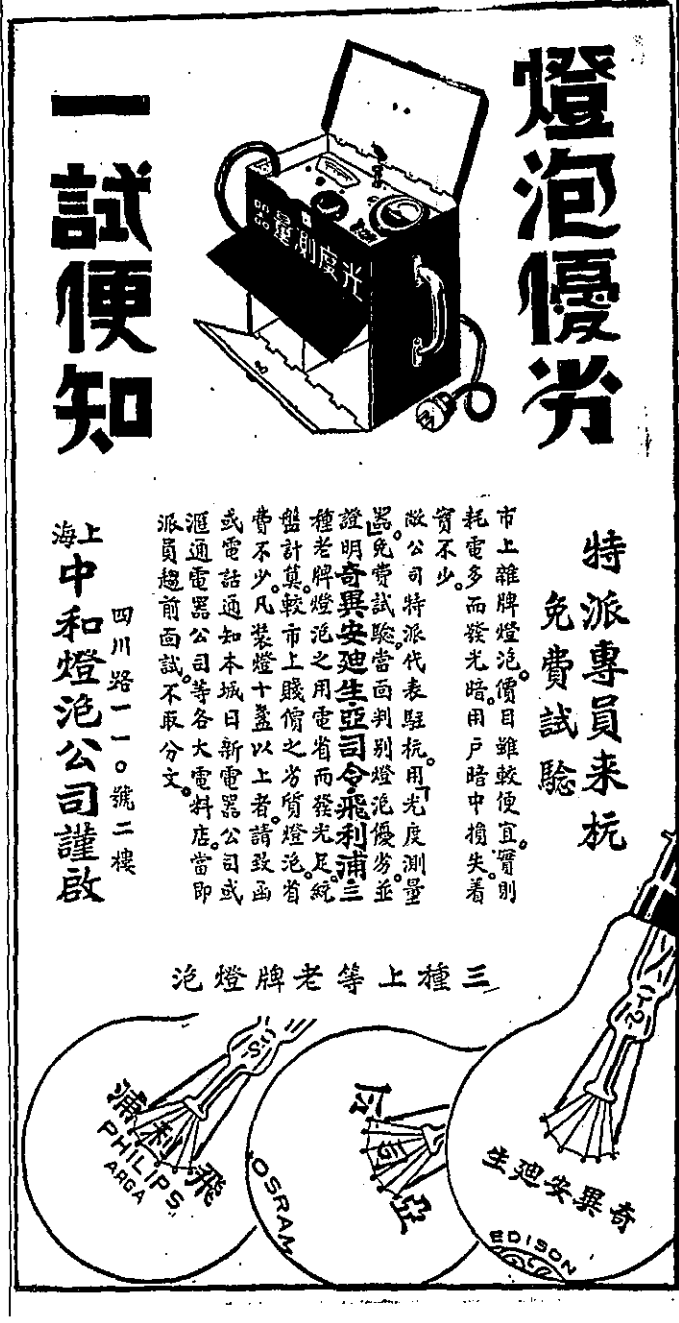 燈泡優劣
一試便知
光度測量器
特派專員来杭
免費試驗
市上雜牌燈泡。價目雖較便宜。實則
耗電多而發光暗。用戶暗中損失。着
實不少。
敝公司特派代表駐杭。用「光度測量
器」免費試驗。當面判別燈泡優劣。並
證明奇異安廸生亞司令飛利浦三
種老牌燈泡之用電省而發光足。統
盤計算。較市上賤價之劣質燈泡。省
費不少。凡裝燈十盞以上者。請致函
或電話通知本城日新電器公司或
滙通電器公司等各大電料店。當即
派員趨前面試。不取分文。
四川路一一〇號二樓
上海中和燈泡公司謹啟
三種上等老牌燈泡
奇異安廸生
EDISON
亞司令
OSRAM
飛利浦
PHILIPS
ARGA